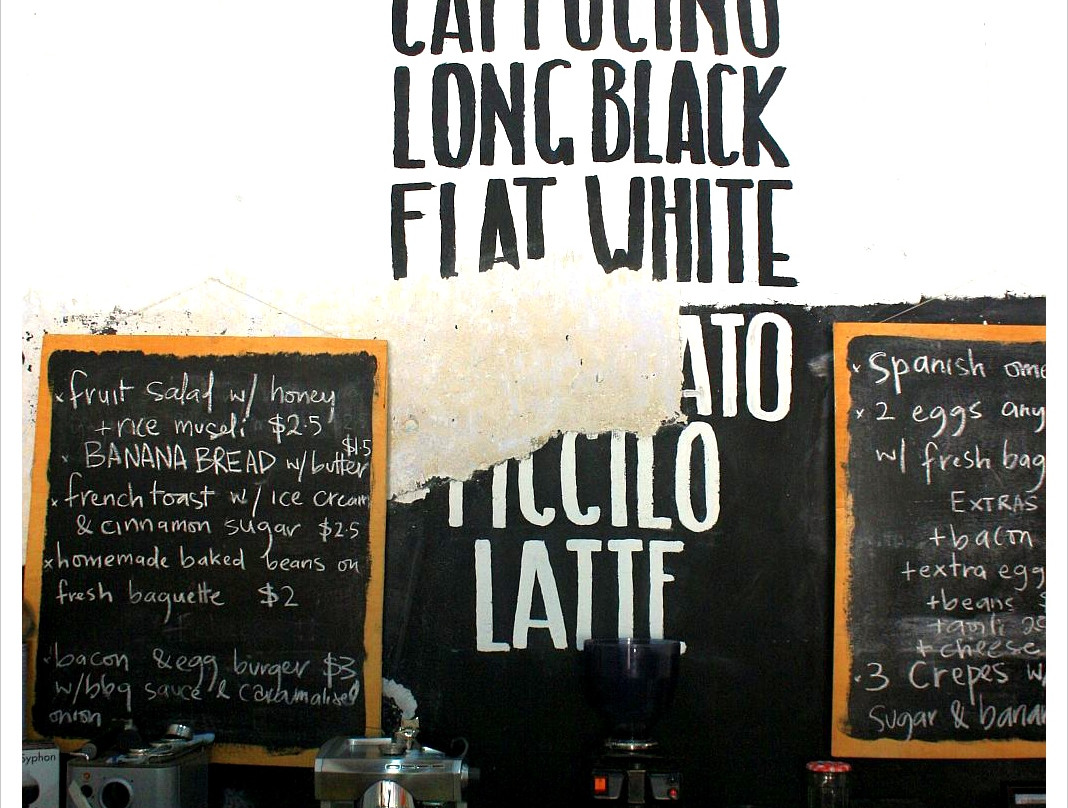 CAPPUCINO
LONG BLACK
FLAT WHITE
ATO
PICCILO
LATTE
× fruit salad w/ honey
+ rice museli $2.5
× BANANA BREAD w/butter $1.5
× french toast w/ ice cream
& cinnamon sugar $2.5
× homemade baked beans on
fresh baguette $2
× bacon & egg burger $3
w/bbq sauce & caramalised
onion
× Spanish ome
× 2 eggs any
w/ fresh bag
EXTRAS
+bacon
+extra egg
+beans $
+aoili 25
+cheese
× 3 Crepes w/
Sugar & banan
Syphon